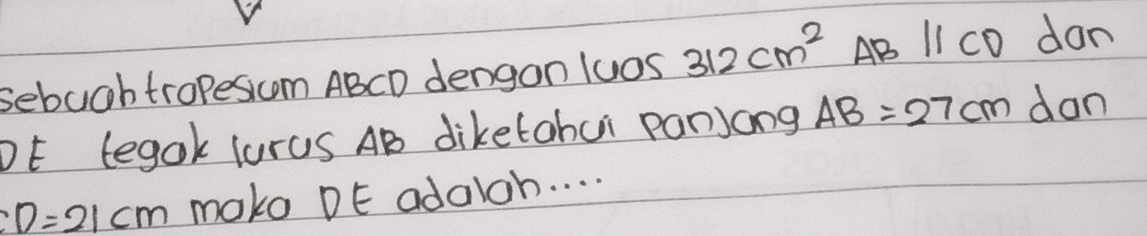 sebuah trapesium ABCD dengan luas 312 cm² AB // CD dan
DE tegak lurus AB diketahui panjang AB = 27 cm dan
CD = 21 cm maka DE adalah....